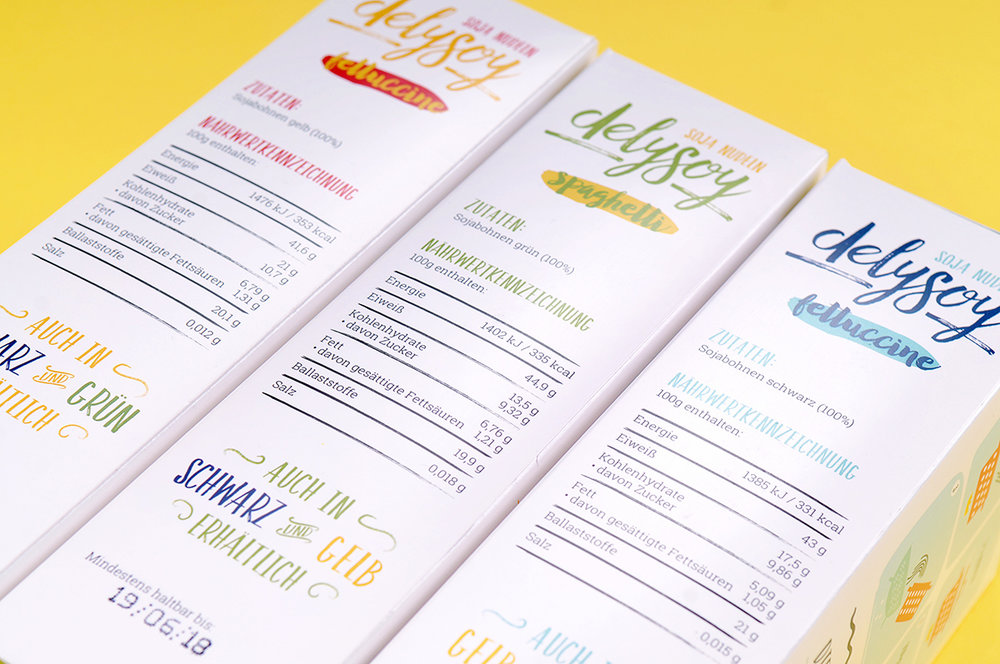 delysoy
SOJA NUDELN
fettuccine
ZUTATEN:
Sojabohnen gelb (100%)
NÄHRWERTKENNZEICHNUNG
100g enthalten:
Energie 1476 kJ / 353 kcal
Eiweiß 41,6 g
Kohlenhydrate 21 g
• davon Zucker 10,7 g
Fett 6,79 g
• davon gesättigte Fettsäuren 1,31 g
Ballaststoffe 20,1 g
Salz 0,012 g
AUCH IN
SCHWARZ UND GRÜN
delysoy
SOJA NUDELN
spaghetti
ZUTATEN:
Sojabohnen grün (100%)
NÄHRWERTKENNZEICHNUNG
100g enthalten:
Energie 1402 kJ / 335 kcal
Eiweiß 44,9 g
Kohlenhydrate 13,5 g
• davon Zucker 9,32 g
Fett 6,76 g
• davon gesättigte Fettsäuren 1,21 g
Ballaststoffe 19,9 g
Salz 0,018 g
AUCH IN
SCHWARZ UND GELB
ERHÄLTLICH
Mindestens haltbar bis:
19:06:18
delysoy
SOJA NUDELN
fettuccine
ZUTATEN:
Sojabohnen schwarz (100%)
NÄHRWERTKENNZEICHNUNG
100g enthalten:
Energie 1385 kJ / 331 kcal
Eiweiß 43 g
Kohlenhydrate 17,5 g
• davon Zucker 9,86 g
Fett 5,09 g
• davon gesättigte Fettsäuren 1,05 g
Ballaststoffe 21 g
Salz 0,015 g
AUCH IN
GELB